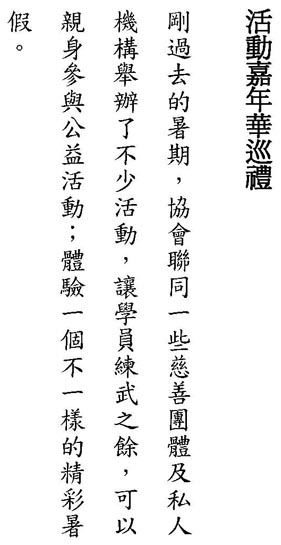 活動嘉年華巡禮
剛過去的暑期，協會聯同一些慈善團體及私人
機構舉辦了不少活動，讓學員練武之餘，可以
親身參與公益活動；體驗一個不一樣的精彩暑
假。